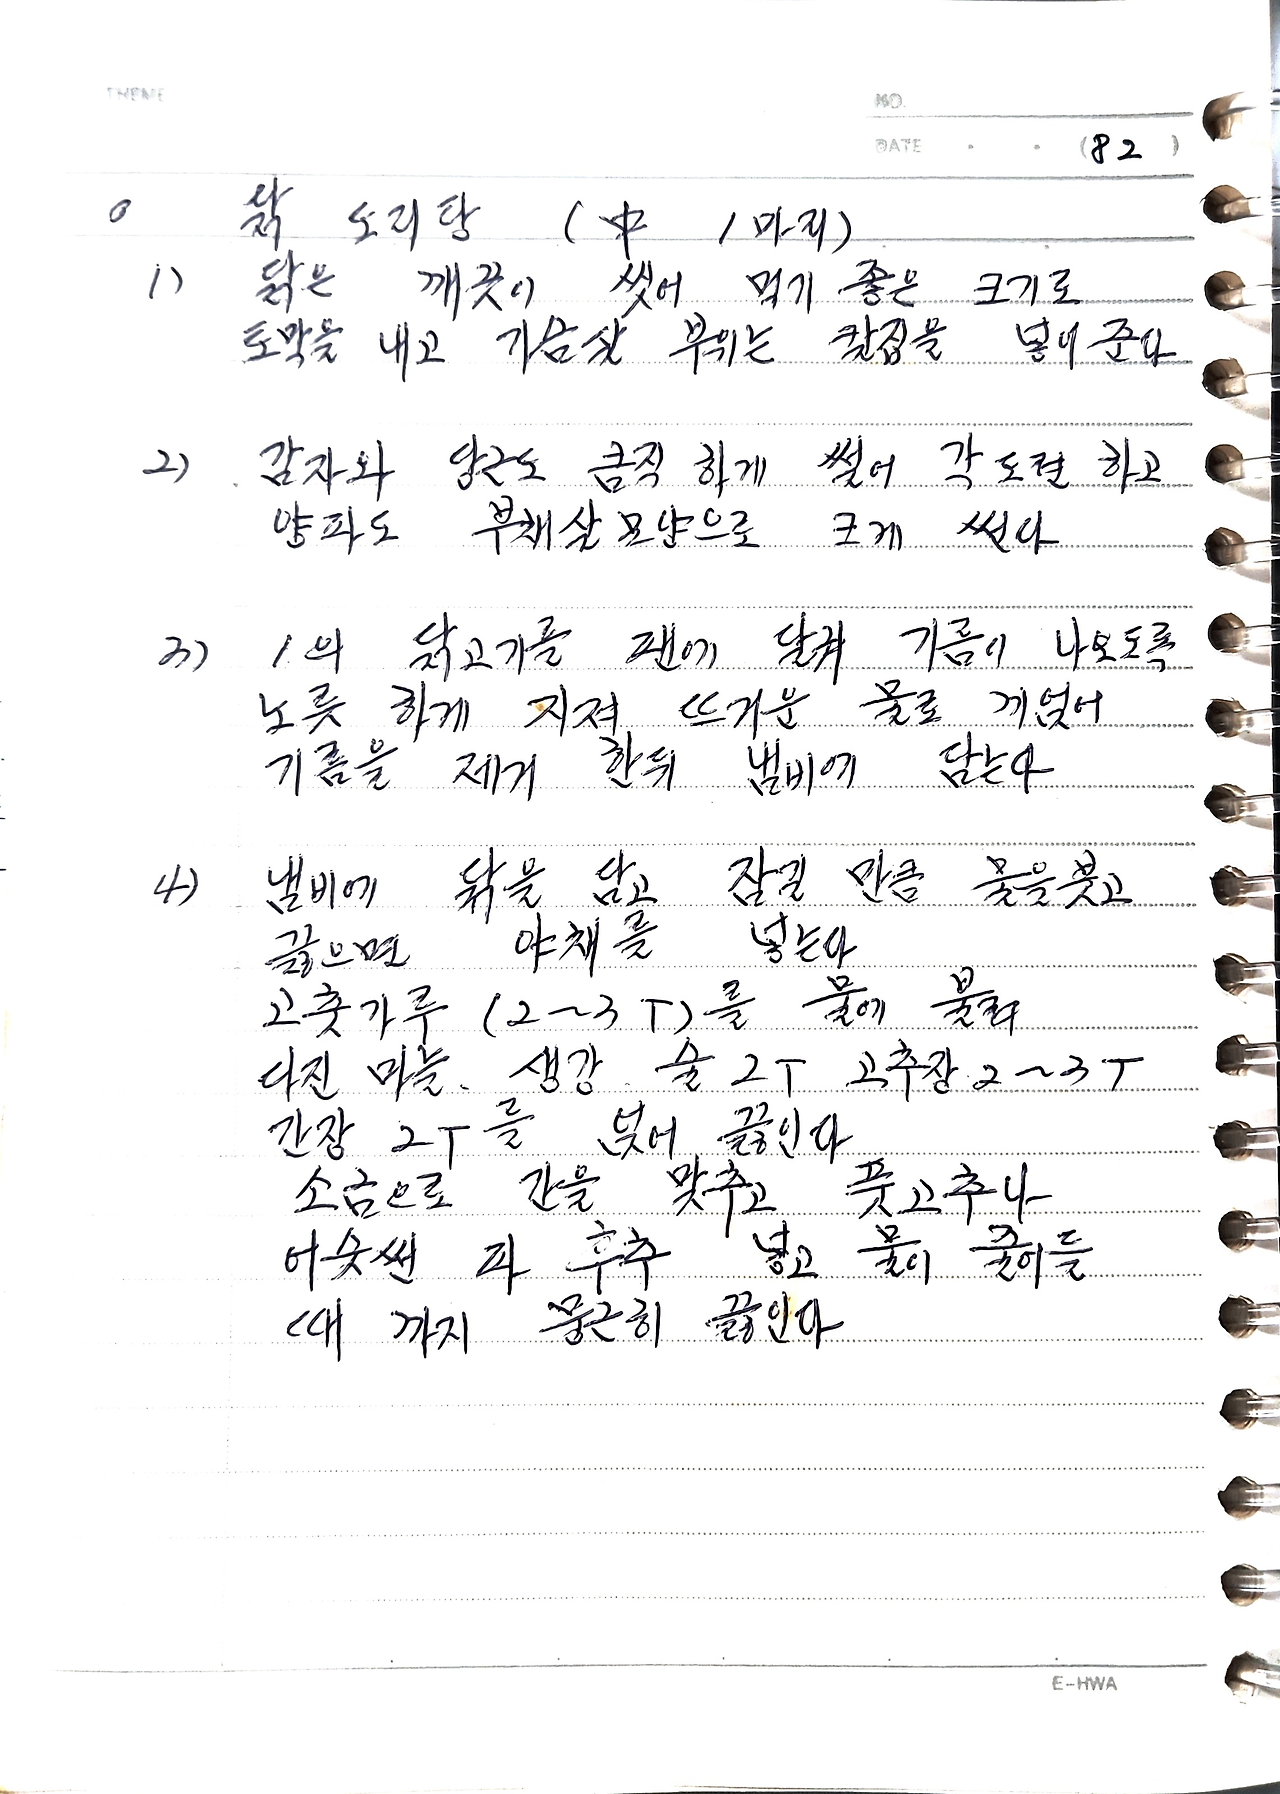 THEME
NO.
DATE . . (82)
o 닭 도리탕 (中 1마리)
1) 닭은 깨끗이 씻어 먹기 좋은 크기로
토막을 내고 가슴살 부위는 칼집을 넣어준다
2) 감자와 당근도 큼직하게 썰어 각 도련하고
양파도 부채살모양으로 크게 썬다
3) 1의 닭고기를 팬에 달궈 기름이 나오도록
노릇하게 지져 뜨거운 물로 끼얹어
기름을 제거 한뒤 냄비에 담는다
4) 냄비에 닭을 담고 잠길 만큼 물을붓고
끓으면 야채를 넣는다
고춧가루 (2~3T)를 물에 불려
다진 마늘. 생강. 술 2T 고추장 2~3T
간장 2T를 넣어 끓인다
소금으로 간을 맞추고 풋고추나
어슷썬 파 후추 넣고 물이 줄어들
때 까지 뭉근히 끓인다
E-HWA